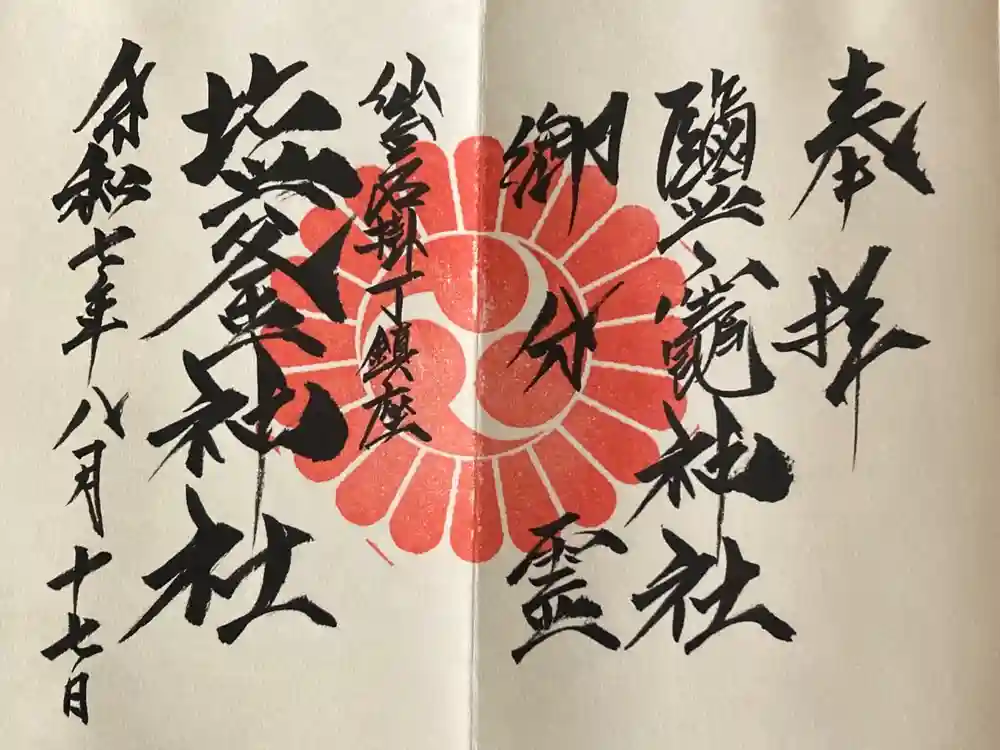 奉拝
鹽竈神社
御分霊
仙台石掛丁鎮座
塩釜神社
令和七年八月十七日